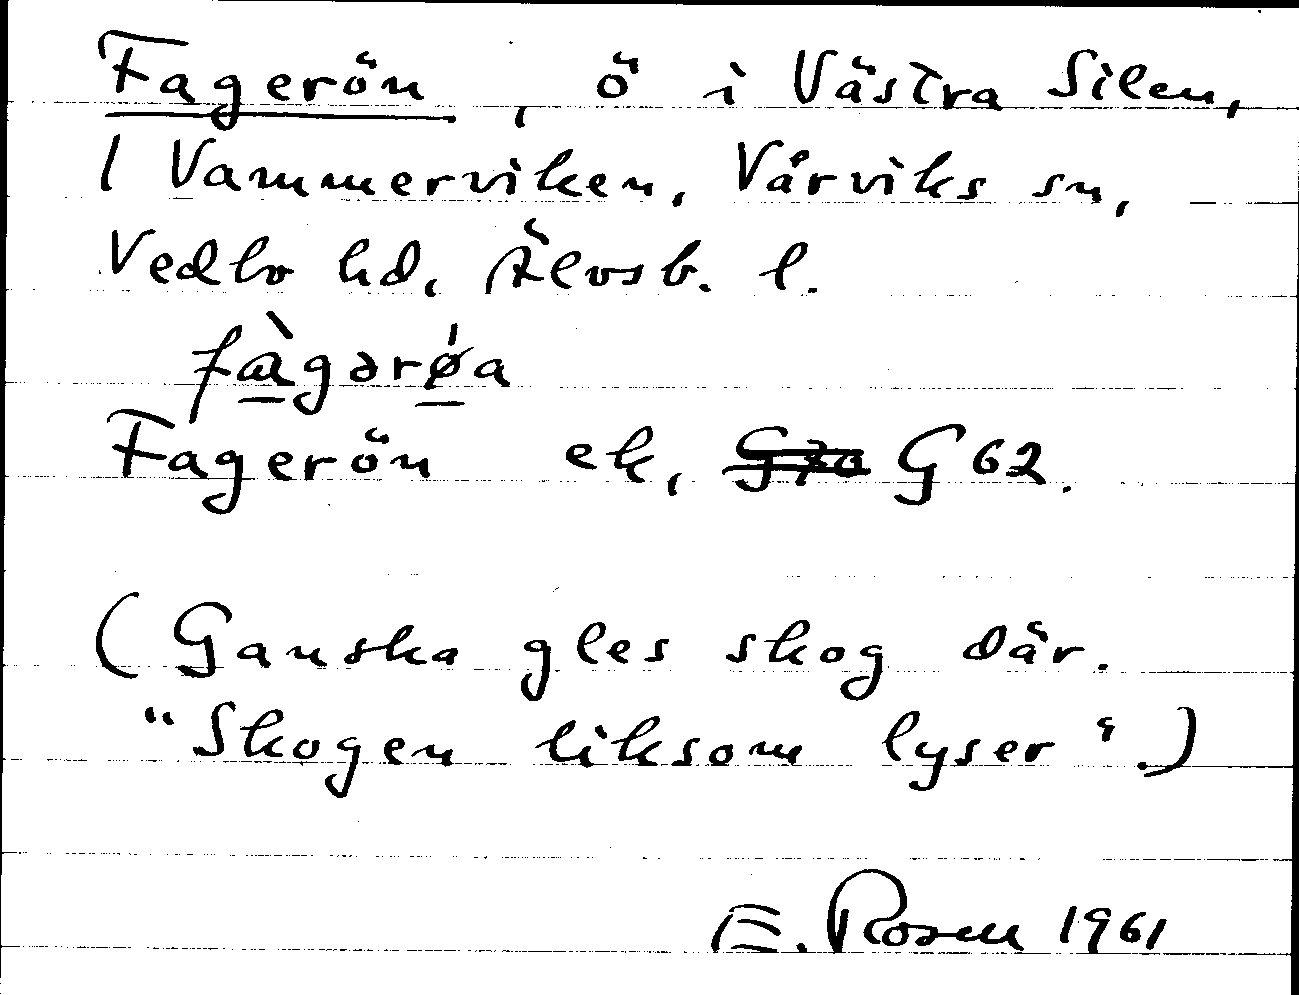 Fagerön, ö i Västra Silen,
i Vammerviken, Vårviks sn,
Vedbo hd, Älvsb. l.
fàgərø̀a
Fagerön ek, G70 G62.
(Ganska gles skog där.
"Skogen liksom lyser".)
E. Rosen 1961